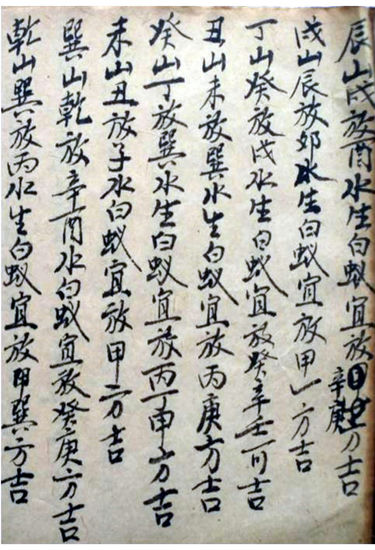 辰山戌放酉水生白蚁宜放辛庚方吉
戌山辰放卯水生白蚁宜放甲一方吉
丁山癸放戌水生白蚁宜放癸辛壬一可吉
丑山未放巽水生白蚁宜放丙庚方吉
癸山丁放巽水生白蚁宜放丙丁甲方吉
未山丑放子水白蚁宜放甲一方吉
巽山乾放辛酉水白蚁宜放癸庚方吉
乾山巽放丙水生白蚁宜放甲巽方吉